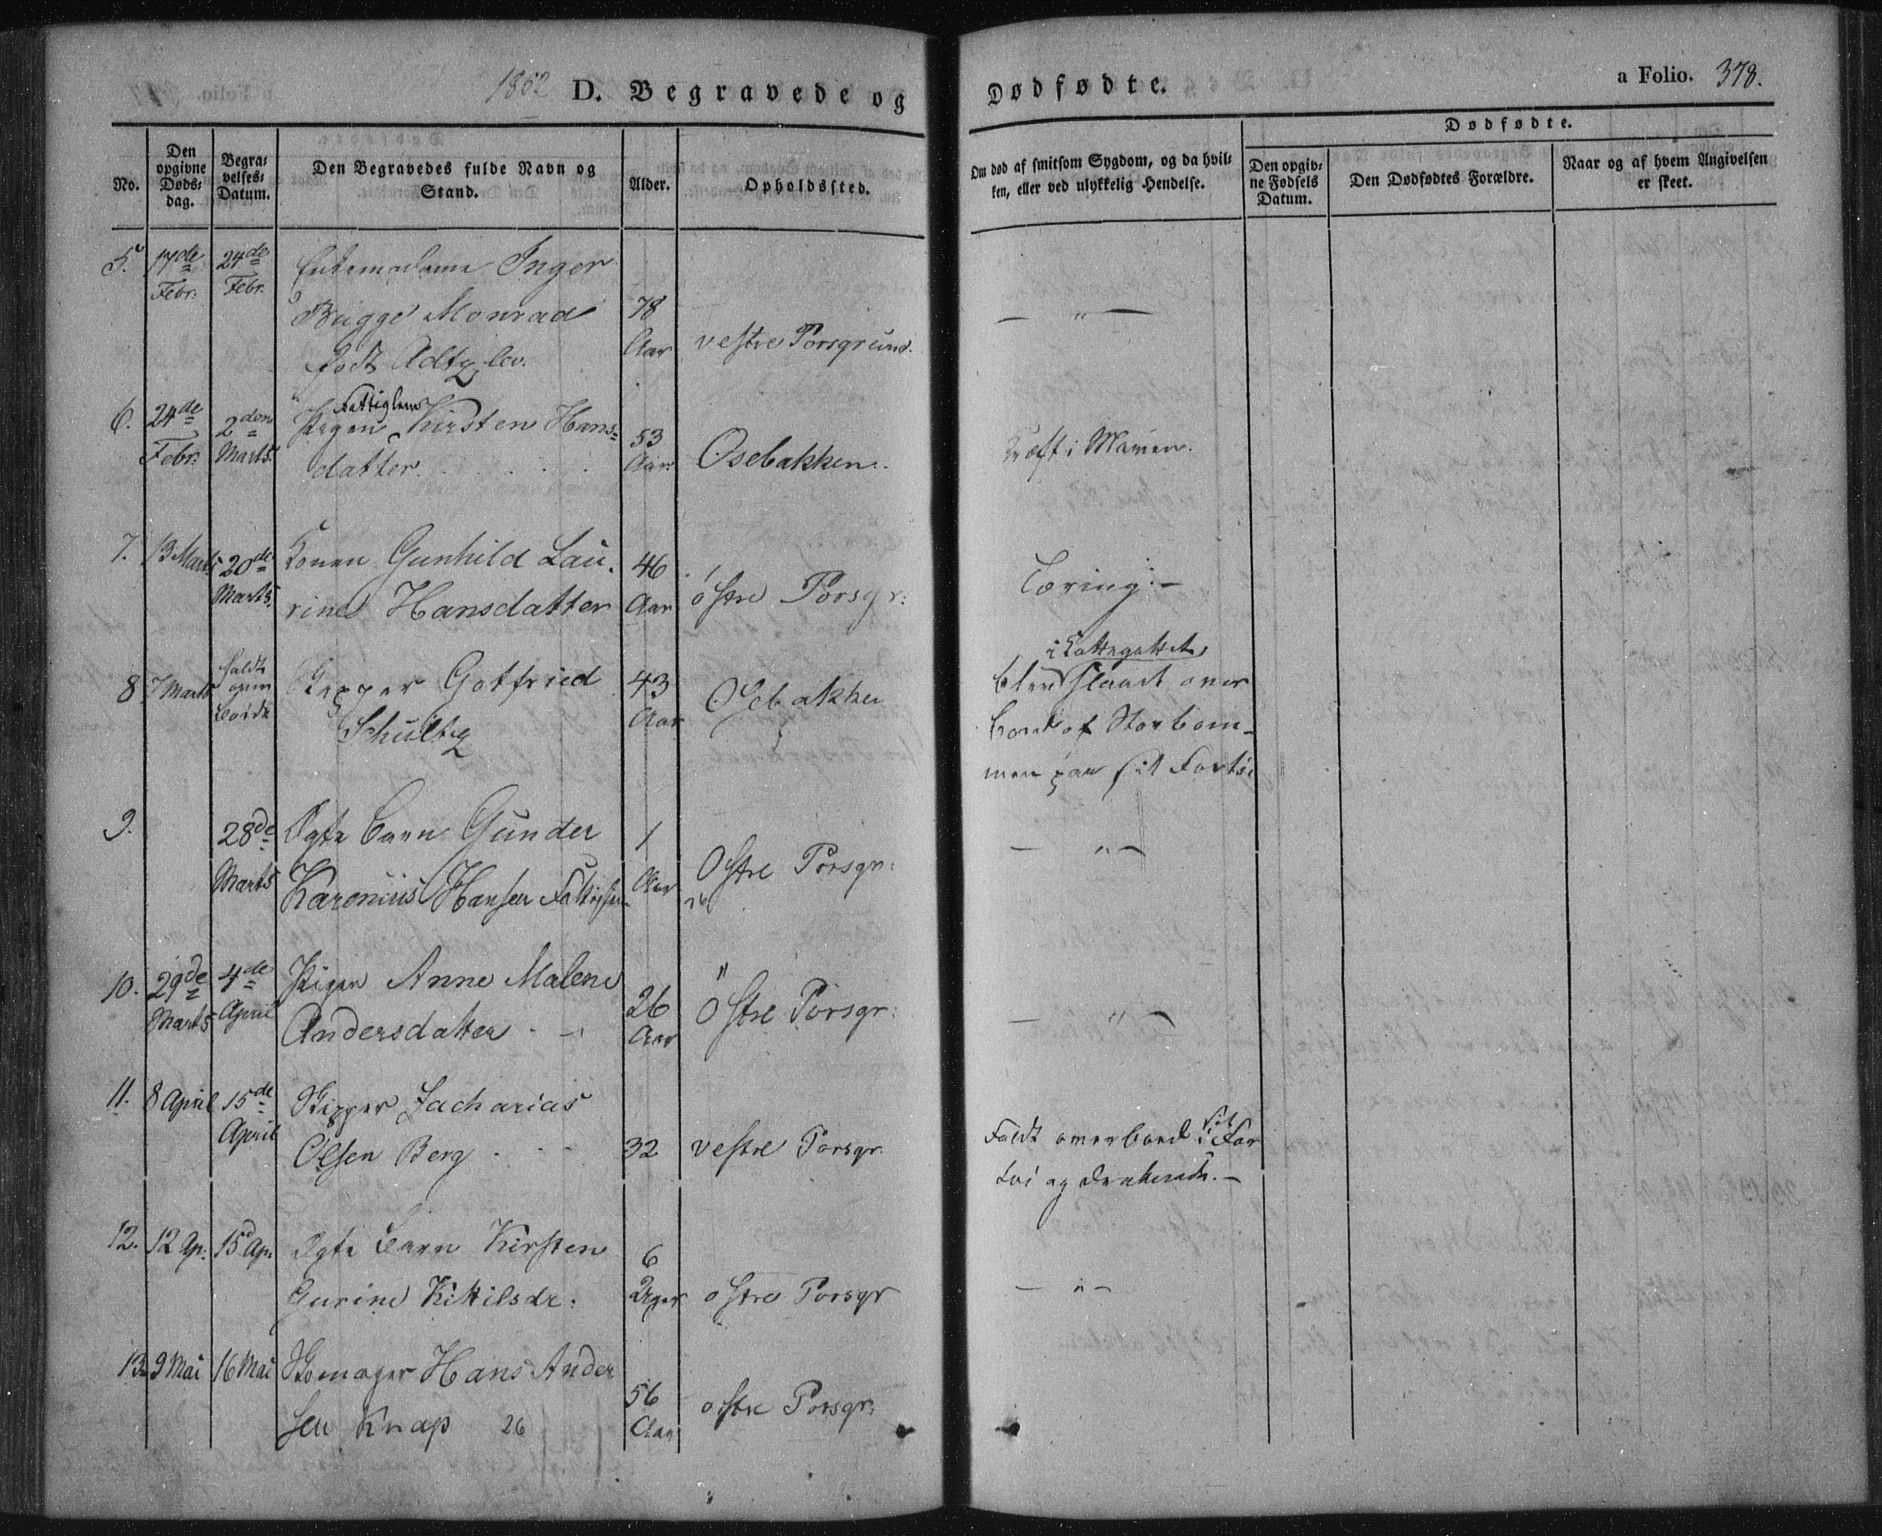 1862 D. Begravede og Dødfødte. a Folio. 378.
No.
Den opgivne Døds-dag.
Begra-velses-Datum.
Den Begravedes fulde Navn og Stand.
Alder.
Opholdssted.
Om død af smitsom Sygdom, og da hvil-ken, eller ved ulykkelig Hendelse.
Dødfødte.
Den opgiv-ne Fødsels Datum.
Den Dødfødtes Forældre.
Naar og af hvem Angivelsen er skeet.
5. 17de Febr: 24de Febr. Enkemadame Inger
Bugge Monrad 78 Aar vestre Porsgrund. — " —
født
6. 24de Febr: 2den Marts Pigen Fattiglem Kirsten Hans-
datter. 53 Aar Osebakken. Kræft i Maven.
7. 13 Marts 20de Marts Konen Gunhild Lau-
rine Hansdatter 46 Aar østre Porsgr: Tæring. —
8. 7 Marts faldt over Bords Skipper Gotfried
Schultz 43 Aar Osebakken
i Kattegattet
blev slaaet over
bord af Storbom-
men paa sit Fartøi
9. 28de Marts Ægte Barn Gunder
Karonius Hansen 1 Aar Østre Porsgr: — " —
26
10. 29de Marts 4de April Pigen Anne Malene
Andersdatter 26 Aar Østre Porsgr: — " —
11. 8 April 15de April Skipper Zacharias
Olsen Berg 32 vestre Porsgr.
Faldt overbord i sit Far
tøi og druknede. —
12. 12 Ap: 15d Ap. Ægte Barn Kirsten
Gurine Kittilsdr. 6 Uger østre Porsgr — " —
13. 9 Mai 16 Mai Skomager Hans Ander
sen Knap 26 56 Aar østre Porsgr: